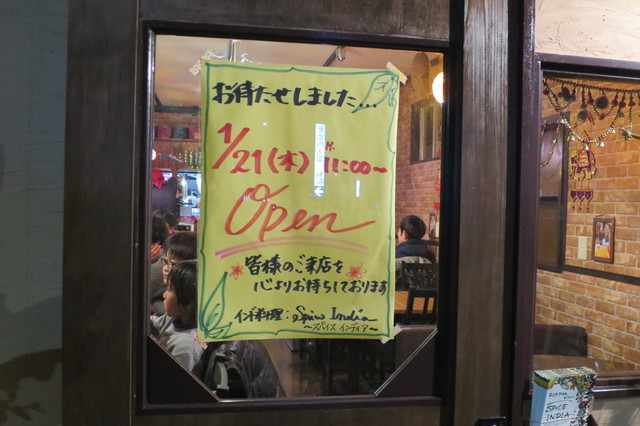 お待たせしました...
1/21(木) 11:00~
Open
皆様のご来店を
心よりお待ちしております
インド料理:Spice India
~スパイス インディア~
SPICE
INDIA